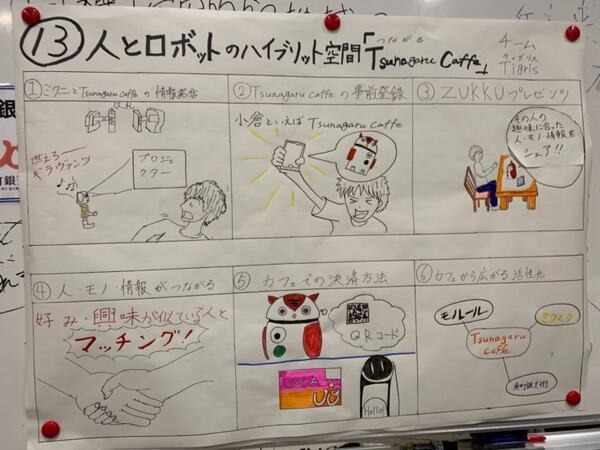 ⑬人とロボットのハイブリット空間「Tsunagaru Caffe」
つながる
チーム
ティグリス
Tigris
①ミクニとTsunagaru Caffeの情報発信
燃えろー
ギラヴァンツ
プロジェ
クター
②Tsunagaru Caffeの事前登録
小倉といえば Tsunagaru Caffe
③ZUKKUプレゼンツ
その人の
趣味に合った
人・モノ・情報を
シェア!!
④人・モノ・情報がつながる
好み・興味が似ている人と
マッチング!
⑤カフェでの決済方法
QRコード
Hello!
⑥カフェから広がる活性化
モノレール
ミクスタ
Tsunagaru
caffe
魚町銀天街